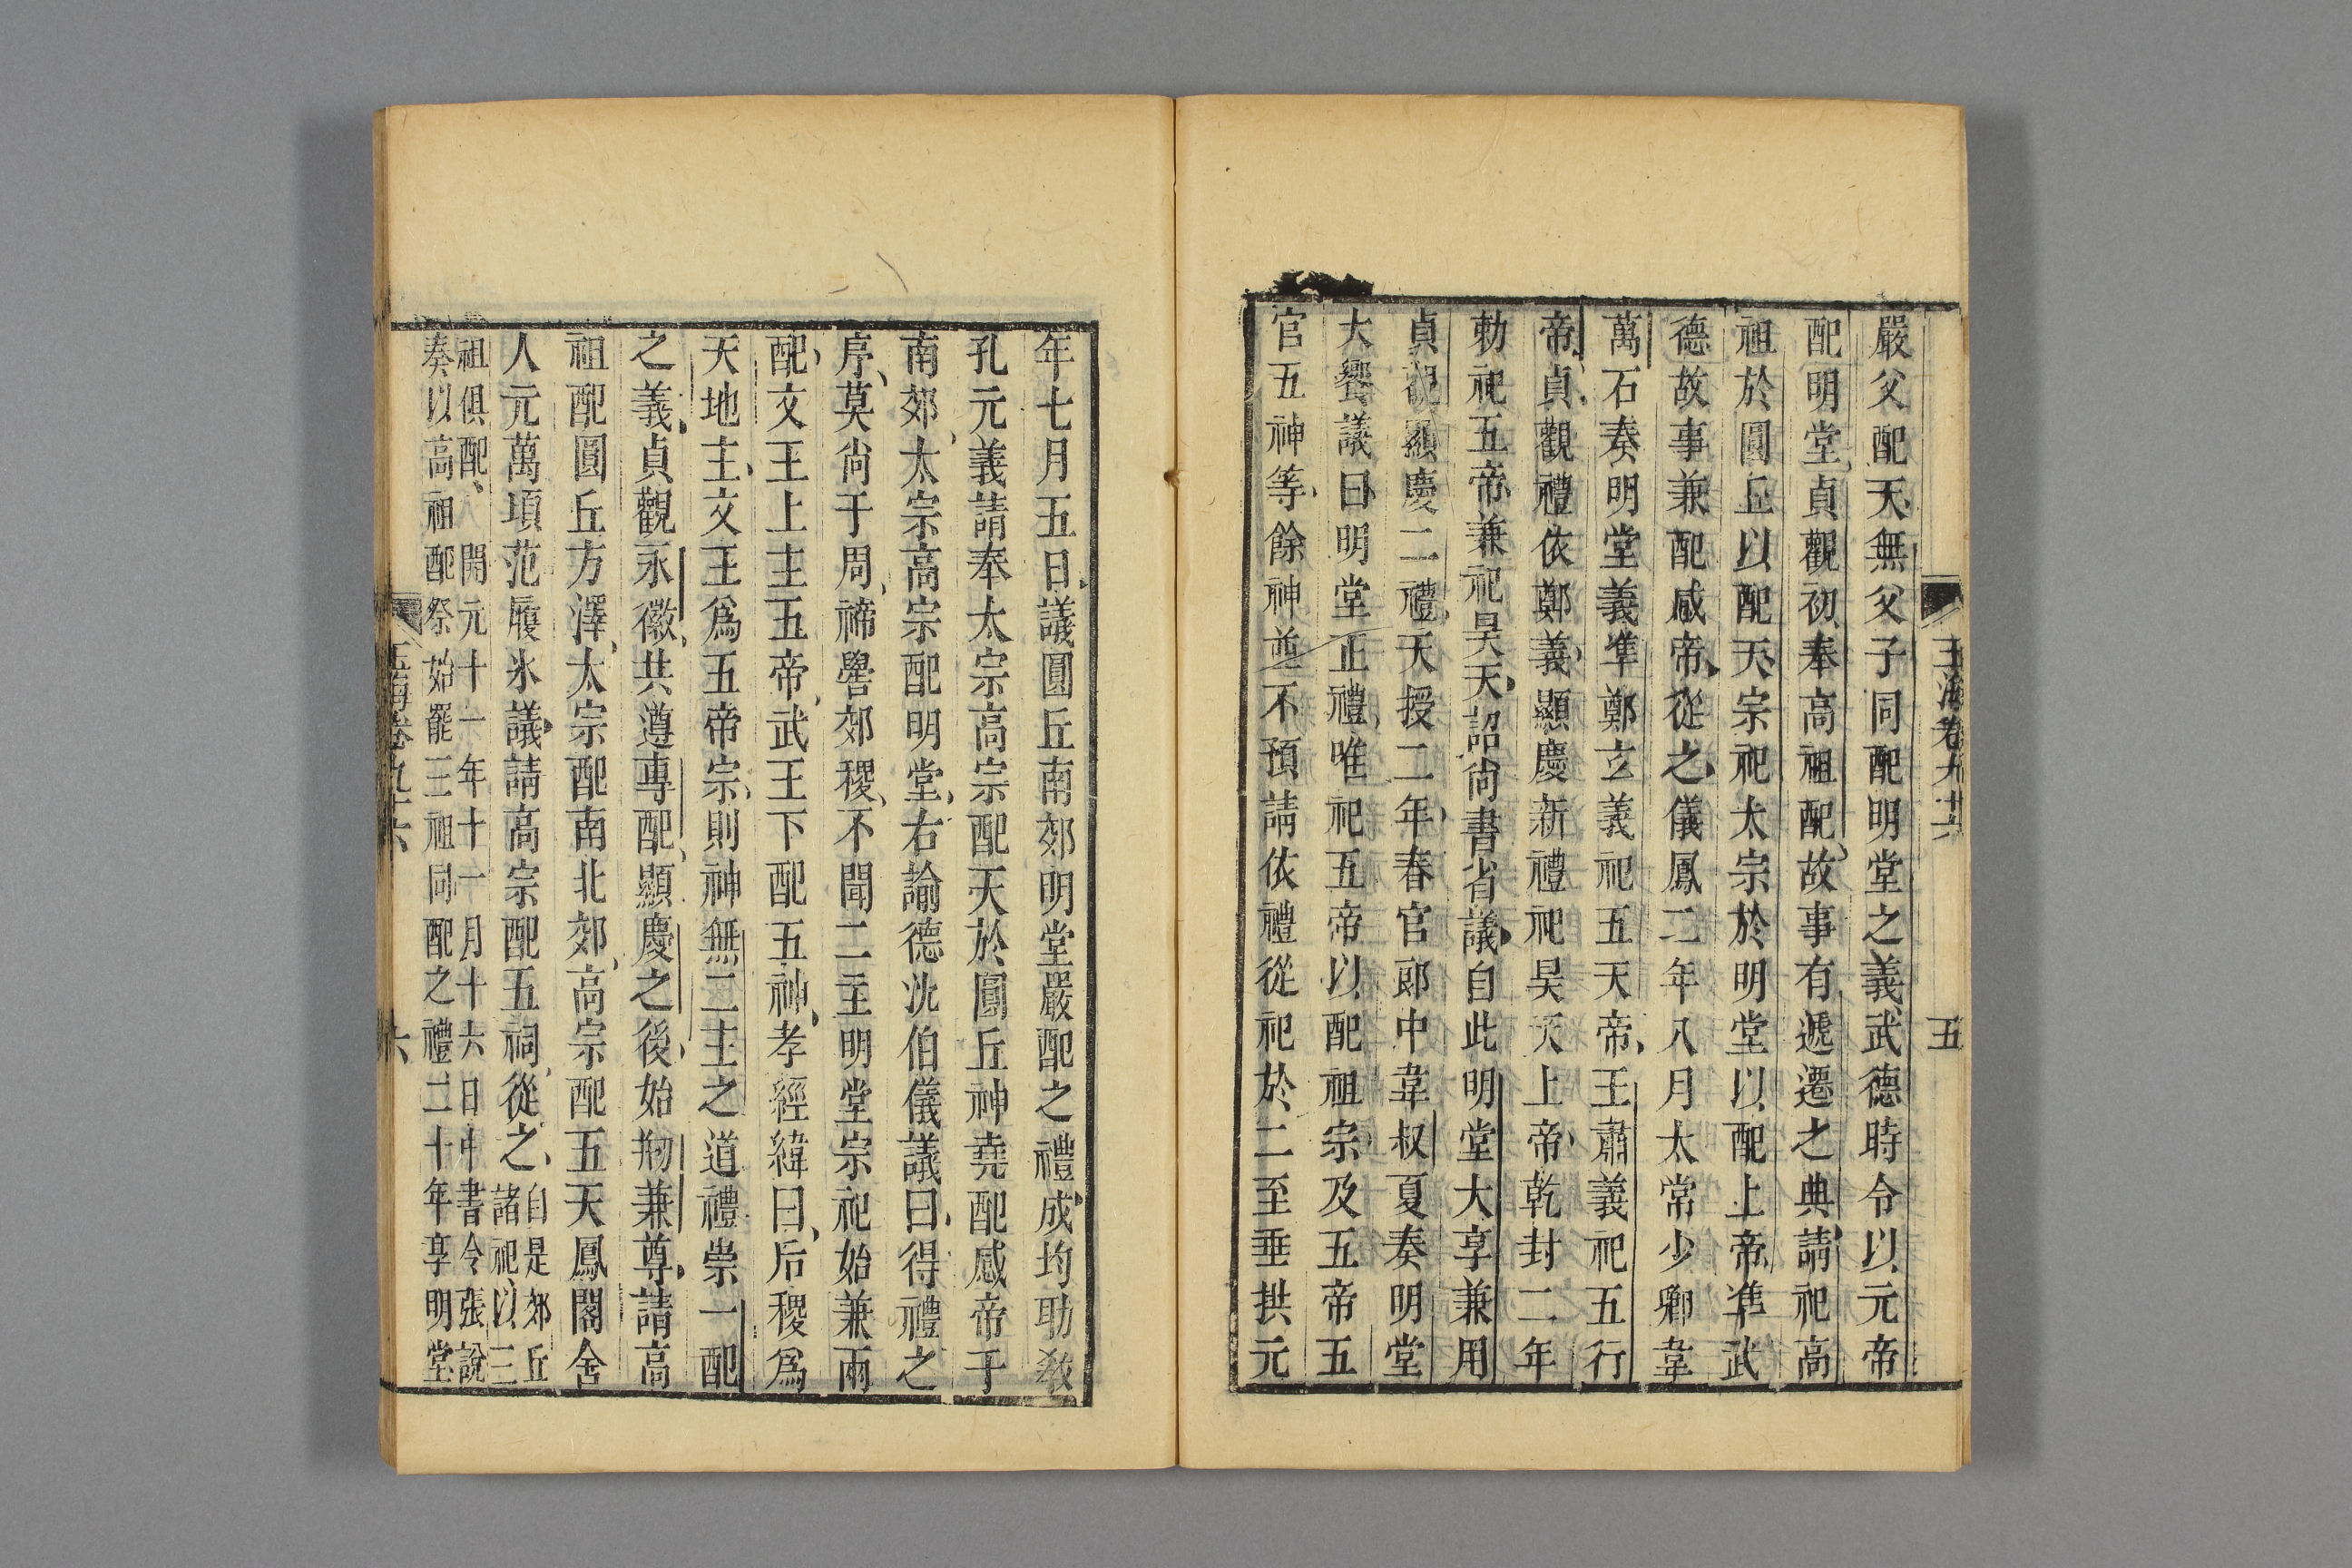 玉海卷九十六
五
嚴父配天無父子同配明堂之義武德時令以元帝
配明堂貞觀初奉高祖配故事有遞遷之典請祀高
祖於圓丘以配天宗祀太宗於明堂以配上帝準武
德故事兼配感帝從之儀鳳二年八月太常少卿韋
萬石奏明堂義準鄭玄義祀五天帝王肅義祀五行
帝貞觀禮依鄭義顯慶新禮祀昊天上帝乾封二年
勅祀五帝兼祀昊天詔尚書省議自此明堂大享兼用
貞觀顯慶二禮天授二年春官郎中韋叔夏奏明堂
大饗議曰明堂正禮唯祀五帝以配祖宗及五帝五
官五神等餘神並不預請依禮從祀於二至垂拱元
年七月五日議圓丘南郊明堂嚴配之禮成均助教
孔元義請奉太宗高宗配天於圓丘神堯配感帝于
南郊太宗高宗配明堂右諭德沈伯儀議曰得禮之
序莫尚于周禘嚳郊稷不聞二主明堂宗祀始兼兩
配文王上主五帝武王下配五神孝經緯曰后稷爲
天地主文王爲五帝宗則神無二主之道禮崇一配
之義貞觀永徽共遵專配顯慶之後始剏兼尊請高
祖配圓丘方澤太宗配南北郊高宗配五天鳳閣舍
人元萬頃范履冰議請高宗配五祠從之自是郊丘
諸祀以三
祖俱配開元十一年十一月十六日中書令張說
奏以高祖配祭始罷三祖同配之禮二十年享明堂
玉海卷九十六
六